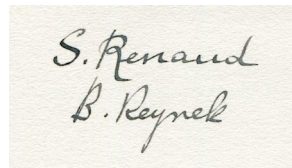 S. Renaud
B. Reynek